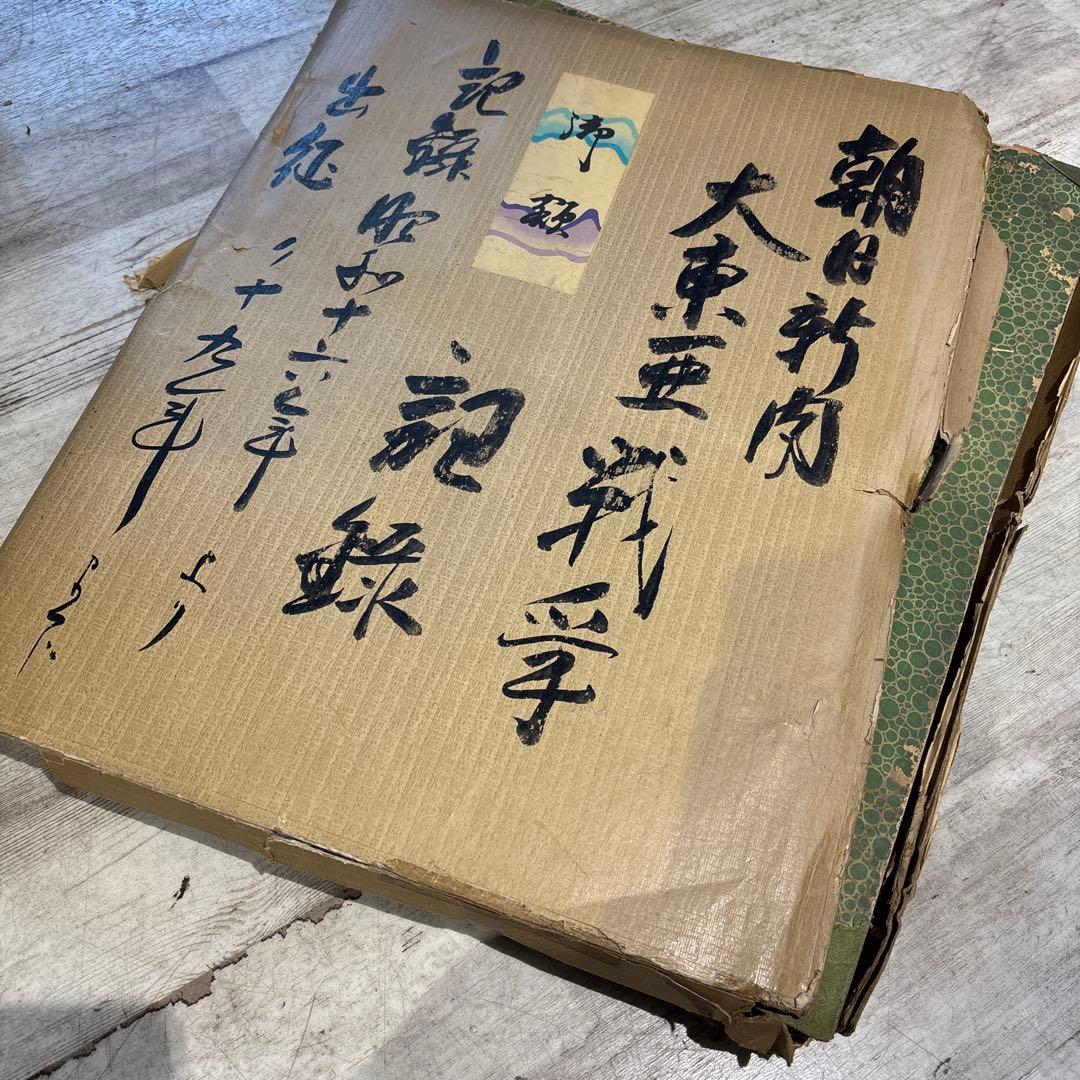 朝日新聞
大東亜戦争
記録
御額
記録 昭和十六年 より
出征 二十九年 まで